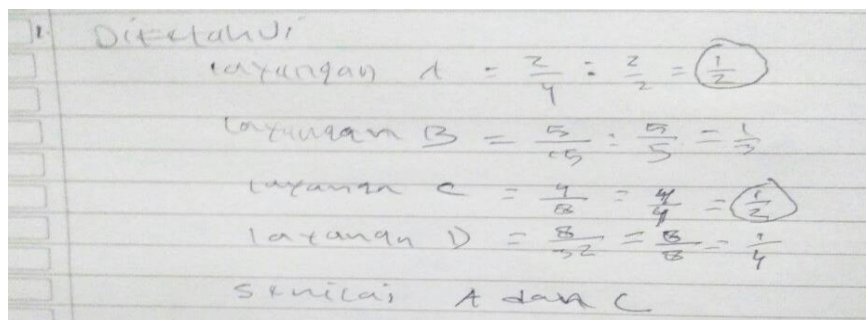 1. Diketahui
layangan A = 2/4 : 2/2 = 1/2
layangan B = 5/15 : 5/5 = 1/3
layangan C = 4/8 = 4/4 = 1/2
layangan D = 8/32 = 8/8 = 1/4
Senilai A dan C